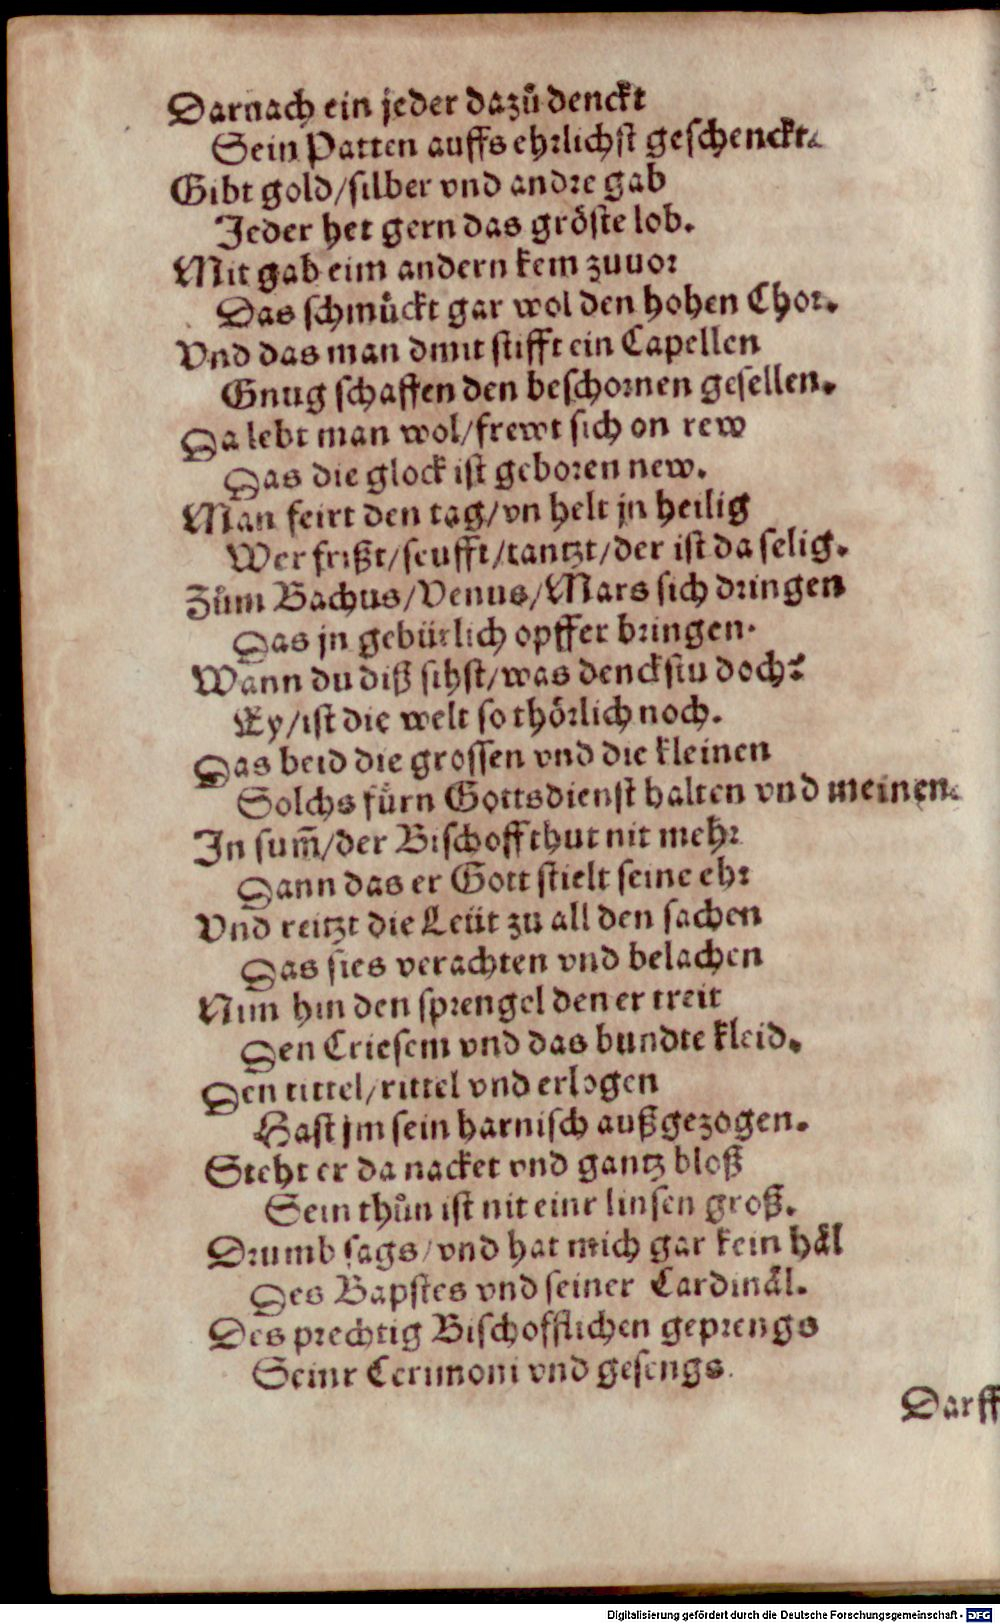 Darnach ein jeder dazů denckt
Sein Patten auffs ehrlichst geschenckt.
Gibt gold/silber vnd andre gab
Jeder het gern das gröste lob.
Mit gab eim andern kem zuuor
Das schmůckt gar wol den hohen Chor.
Vnd das man dmit stifft ein Capellen
Gnug schaffen den beschornen gesellen.
Da lebt man wol/frewt sich on rew
Das die glock ist geboren new.
Man feirt den tag/vn helt jn heilig
Wer frißt/seufft/tantzt/der ist da selig.
Zům Bachus/Venus/Mars sich dringen
Das jn gebürlich opffer bringen.
Wann du diß sihst/was denckstu doch?
Ey/ist die welt so thörlich noch.
Das beid die grossen vnd die kleinen
Solchs fürn Gottsdienst halten vnd meinen.
In sum̃/der Bischoff thut nit mehr
Dann das er Gott stielt seine ehr
Vnd reitzt die Leüt zu all den sachen
Das sies verachten vnd belachen
Nim hin den sprengel den er treit
Den Criesem vnd das bundte kleid.
Den tittel/rittel vnd erlogen
Hast jm sein harnisch außgezogen.
Steht er da nacket vnd gantz bloß
Sein thůn ist nit einr linsen groß.
Drumb sags/vnd hat mich gar kein häl
Des Bapstes vnd seiner Cardinäl.
Des prechtig Bischofflichen geprengs
Seinr Cerimoni vnd gesengs.
Darff
Digitalisierung gefördert durch die Deutsche Forschungsgemeinschaft - DFG